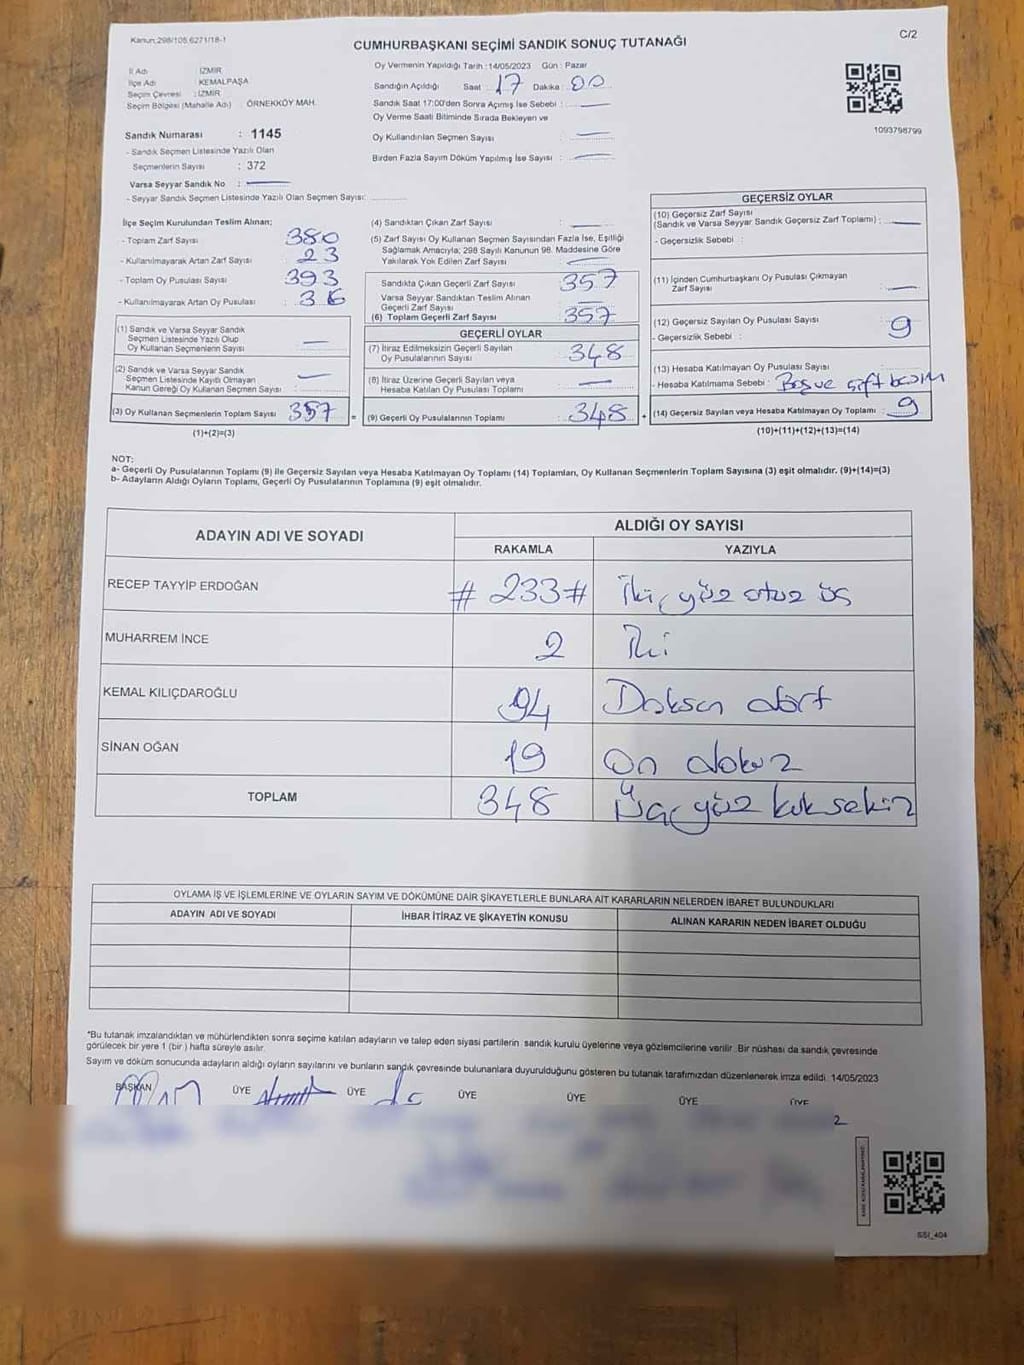 Kanun;298/105,6271/18-1
C/2
CUMHURBAŞKANI SEÇİMİ SANDIK SONUÇ TUTANAĞI
İl Adı : İZMİR
İlçe Adı : KEMALPAŞA
Seçim Çevresi : İZMİR
Seçim Bölgesi (Mahalle Adı) : ÖRNEKKÖY MAH.
Sandık Numarası : 1145
- Sandık Seçmen Listesinde Yazılı Olan
Seçmenlerin Sayısı : 372
Varsa Seyyar Sandık No :
- Seyyar Sandık Seçmen Listesinde Yazılı Olan Seçmen Sayısı:
Oy Vermenin Yapıldığı Tarih :14/05/2023 Gün : Pazar
Sandığın Açıldığı Saat : 17 Dakika : 00
Sandık Saat 17:00'den Sonra Açımış İse Sebebi :
Oy Verme Saati Bitiminde Sırada Bekleyen ve
Oy Kullandırılan Seçmen Sayısı :
Birden Fazla Sayım Döküm Yapılmış İse Sayısı :
1093798799
İlçe Seçim Kurulundan Teslim Alınan;
- Toplam Zarf Sayısı : 380
- Kullanılmayarak Artan Zarf Sayısı : 23
- Toplam Oy Pusulası Sayısı : 393
- Kullanılmayarak Artan Oy Pusulası : 36
(1) Sandık ve Varsa Seyyar Sandık
Seçmen Listesinde Yazılı Olup
Oy Kullanan Seçmenlerin Sayısı :
(2) Sandık ve Varsa Seyyar Sandık
Seçmen Listesinde Kayıtlı Olmayan
Kanun Gereği Oy Kullanan Seçmen Sayısı :
(3) Oy Kullanan Seçmenlerin Toplam Sayısı : 357
(1)+(2)=(3)
(4) Sandıktan Çıkan Zarf Sayısı :
(5) Zarf Sayısı Oy Kullanan Seçmen Sayısından Fazla İse, Eşitliği
Sağlamak Amacıyla; 298 Sayılı Kanunun 98. Maddesine Göre
Yakılarak Yok Edilen Zarf Sayısı :
Sandıkta Çıkan Geçerli Zarf Sayısı : 357
Varsa Seyyar Sandıktan Teslim Alınan
Geçerli Zarf Sayısı :
(6) Toplam Geçerli Zarf Sayısı : 357
GEÇERLİ OYLAR
(7) İtiraz Edilmeksizin Geçerli Sayılan
Oy Pusulalarının Sayısı : 348
(8) İtiraz Üzerine Geçerli Sayılan veya
Hesaba Katılan Oy Pusulaları Toplamı :
= (9) Geçerli Oy Pusulalarının Toplamı : 348 +
GEÇERSİZ OYLAR
(10) Geçersiz Zarf Sayısı
(Sandık ve Varsa Seyyar Sandık Geçersiz Zarf Toplamı) :
- Geçersizlik Sebebi :
(11) İçinden Cumhurbaşkanı Oy Pusulası Çıkmayan
Zarf Sayısı :
(12) Geçersiz Sayılan Oy Pusulası Sayısı : 9
- Geçersizlik Sebebi :
(13) Hesaba Katılmayan Oy Pusulası Sayısı :
- Hesaba Katılmama Sebebi : Boş ve çift basım
(14) Geçersiz Sayılan veya Hesaba Katılmayan Oy Toplamı : 9
(10)+(11)+(12)+(13)=(14)
NOT:
a- Geçerli Oy Pusulalarının Toplamı (9) ile Geçersiz Sayılan veya Hesaba Katılmayan Oy Toplamı (14) Toplamları, Oy Kullanan Seçmenlerin Toplam Sayısına (3) eşit olmalıdır. (9)+(14)=(3)
b- Adayların Aldığı Oyların Toplamı, Geçerli Oy Pusulalarının Toplamına (9) eşit olmalıdır.
ADAYIN ADI VE SOYADI
ALDIĞI OY SAYISI
RAKAMLA YAZIYLA
RECEP TAYYİP ERDOĞAN # 233 # İki yüz otuz üç
MUHARREM İNCE 2 İki
KEMAL KILIÇDAROĞLU 94 Doksan dört
SİNAN OĞAN 19 On dokuz
TOPLAM 348 Üç yüz kırk sekiz
OYLAMA İŞ VE İŞLEMLERİNE VE OYLARIN SAYIM VE DÖKÜMÜNE DAİR ŞİKAYETLERLE BUNLARA AİT KARARLARIN NELERDEN İBARET BULUNDUKLARI
ADAYIN ADI VE SOYADI İHBAR İTİRAZ VE ŞİKAYETİN KONUSU ALINAN KARARIN NEDEN İBARET OLDUĞU
*Bu tutanak imzalandıktan ve mühürlendikten sonra seçime katılan adayların ve talep eden siyasi partilerin sandık kurulu üyelerine veya gözlemcilerine verilir. Bir nüshası da sandık çevresinde
görülecek bir yere 1 (bir ) hafta süreyle asılır.
Sayım ve döküm sonucunda adayların aldığı oyların sayılarını ve bunların sandık çevresinde bulunanlara duyurulduğunu gösteren bu tutanak tarafımızdan düzenlenerek imza edildi. 14/05/2023
BAŞKAN ÜYE ÜYE ÜYE ÜYE ÜYE ÜYE
SSI_404